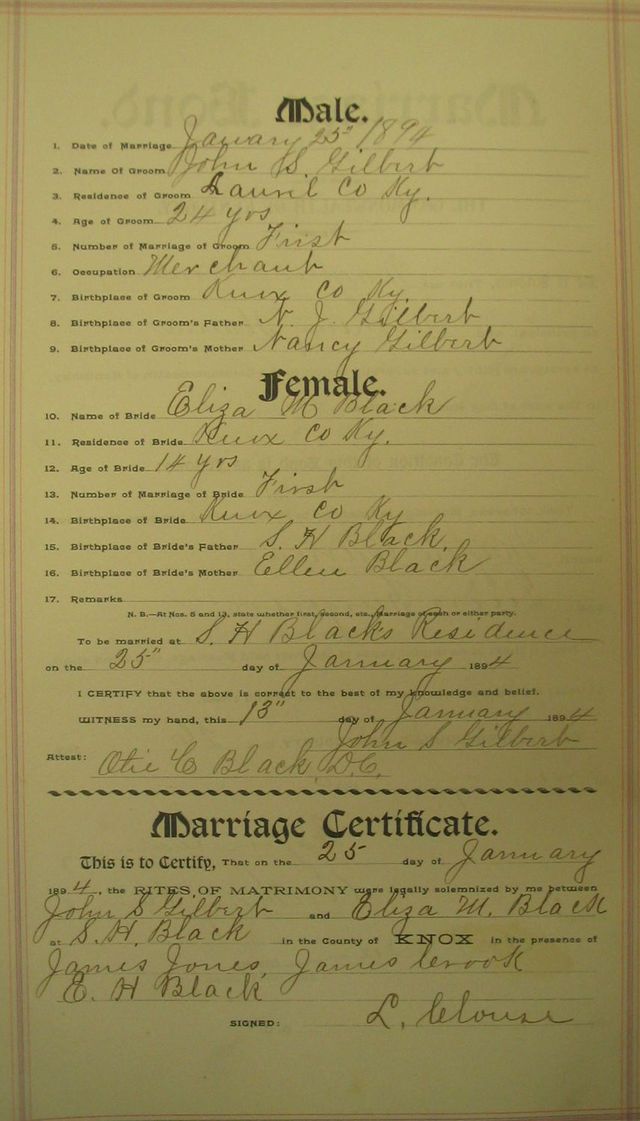 Male.
1. Date of Marriage January 25" 1894
2. Name Of Groom John S. Gilbert
3. Residence of Groom Laurel Co Ky.
4. Age of Groom 24 yrs
5. Number of Marriage of Groom First
6. Occupation Merchant
7. Birthplace of Groom Knox Co Ky.
8. Birthplace of Groom's Father N. J. Gilbert
9. Birthplace of Groom's Mother Nancy Gilbert
Female.
10. Name of Bride Eliza M Black
11. Residence of Bride Knox Co Ky.
12. Age of Bride 14 yrs
13. Number of Marriage of Bride First
14. Birthplace of Bride Knox Co Ky
15. Birthplace of Bride's Father S. H Black.
16. Birthplace of Bride's Mother Ellen Black
17. Remarks
N. B.—At Nos. 5 and 13, state whether first, second, etc., Marriage of each or either party.
To be married at S. H Blacks Residence
on the 25" day of January 1894
I CERTIFY that the above is correct to the best of my knowledge and belief.
WITNESS my hand, this 13" day of January 1894
John S Gilbert
Attest: Otie C Black D.C.
Marriage Certificate.
This is to Certify, That on the 25 day of January
1894, the RITES OF MATRIMONY were legally solemnized by me between
John S Gilbert and Eliza M. Black
at S. H. Black in the County of KNOX in the presence of
James Jones, James Crook
E. H Black
SIGNED: L. Clouse